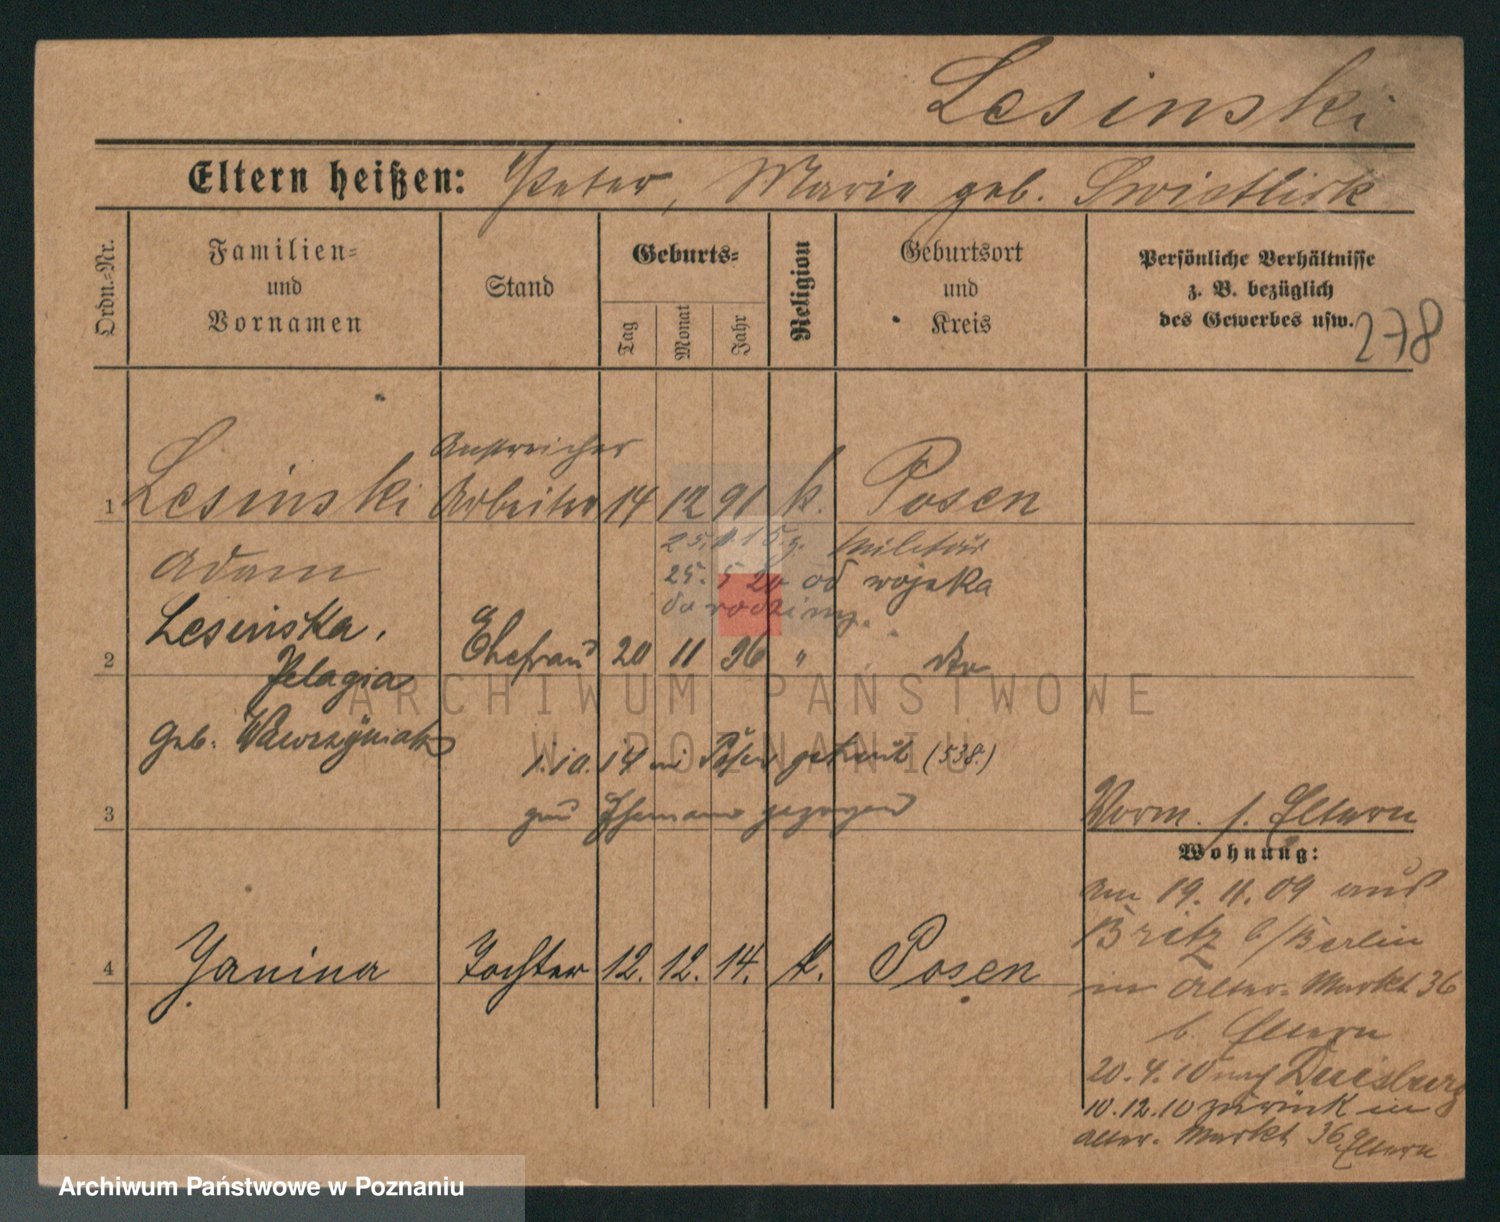 Lesinski
Eltern heißen: Peter, Marie geb. Swietlick
Ordn.-Nr.
Familien-
und
Vornamen
Stand
Geburts-
Tag
Monat
Jahr
Religion
Geburtsort
und
Kreis
Persönliche Verhältnisse
z. B. bezüglich
des Gewerbes usw.
278
Anstreicher
1 Lesinski Arbeiter 14 12 91 k. Posen
25. 15. z. Militär
Adam
25. 5 20 od wojska
do rodziny.
Lesinska,
2 Ehefrau 20 11 96 " dto
Pelagia
geb. Wawrzyniak
1.10.14 in Posen getraut (538.)
3 zum Ehemann gezogen
Vorm. s. Eltern
Wohnung:
Am 19. 11. 09 aus
Britz b/Berlin
in Alter-Markt 36
b. Eltern
4 Janina Tochter 12. 12. 14. k. Posen
20. 4. 10 nach Duisburg
10. 12. 10 zurück in
Alter. Markt 36 Eltern
ARCHIWUM PAŃSTWOWE
W POZNANIU
Archiwum Państwowe w Poznaniu